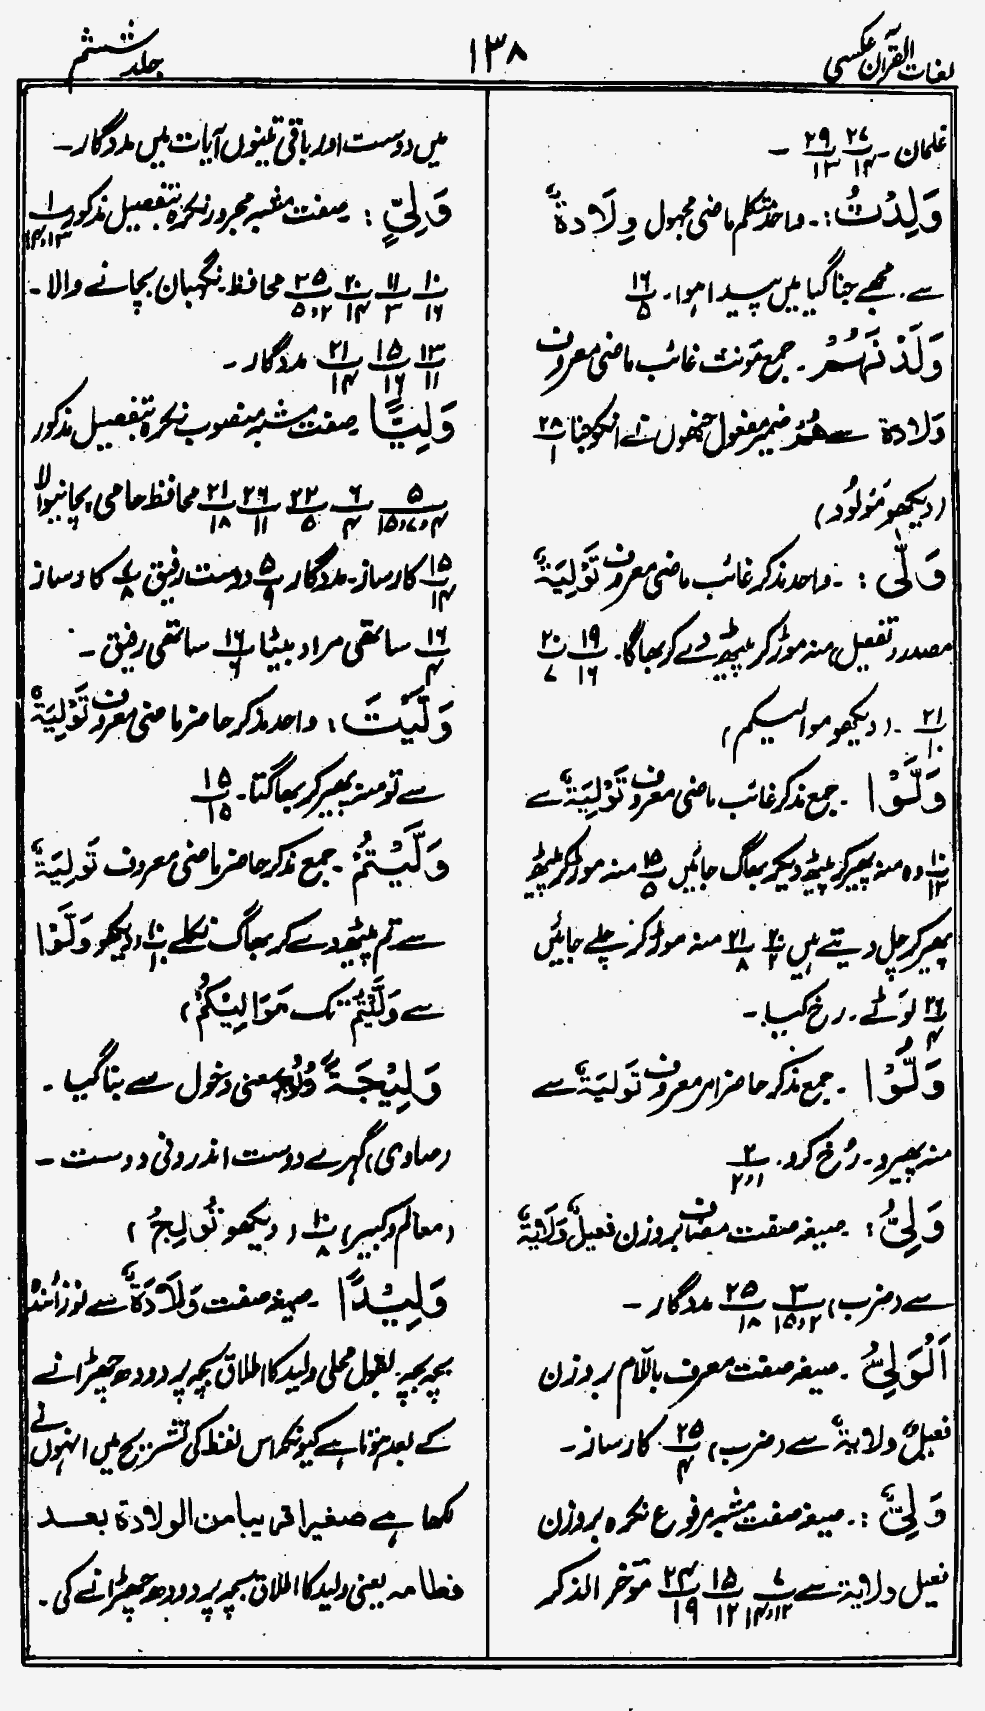 لغات القرآن عکسی
۱۳۸
جلد ششم
غلمان - ۲۷/۱۴ ۲۹/۱۳ -
وَلِدْتُ :- واحد متکلم ماضی مجہول وِلَادَۃٌ
سے۔ مجھے جنا گیا میں پیدا ہوا۔ ۱۶/۵
وَلَدْنَہُمْ - جمع مونث غائب ماضی معروف
وَلادۃ سے ھُمْ ضمیر مفعول جنھوں نے انکو جنا ۲۸/۱
(دیکھو مَوْلُوْد)
وَلّٰی :- واحد مذکر غائب ماضی معروف تَوْلِیَۃٌ
مصدر (تفعیل) منہ موڑ کر پیٹھ دے کر بھاگا۔ ۱۹/۱۶ ۲۰/۷
۲۱/۱۰ - (دیکھو موالیکم)
وَلَّوْا - جمع مذکر غائب ماضی معروف تَوْلِیَۃٌ سے
۱۰/۱۳ وہ منہ پھیر کر پیٹھ دیکر بھاگ جائیں ۱۵/۵ منہ موڑ کر پیٹھ
پھیر کر چل دیتے ہیں ۲۰/۲ ۲۱/۸ منہ موڑ کر چلے جائیں
۲۶/۴ لوَٹے۔ رخ کیا۔ -
وَلُّوْا - جمع مذکر حاضر امر معروف تَولیَۃٌ سے
منہ پھیرو۔ رُخ کرو۔ ۲/۱،۲
وَلِیُّ : صیغہ صفت مضاف بروزن فعیلٌ وَلَایَۃٌ
سے (ضرب) ۳/۱۵،۲ ۲۵/۱۸ مددگار -
اَلْوَلِیُّ - صیغہ صفت معرف باللّام بروزن
فعیلٌ ولایۃٌ سے (ضرب) ۲۵/۴ کارساز -
وَلِیٌّ :- صیغہ صفت مشبہ مرفوع نکرہ بروزن
فعیل ولایۃ سے ۷/۱۴،۱۲ ۱۵/۱۲ ۲۴/۱۹ مؤخر الذکر
میں دوست اور باقی تینوں آیات میں مددگار -
وَلِیٍّ : صفت مشبہ مجرور نکرہ بتفصیل مذکور ۱/۱۴،۱۳
۱۰/۱۶ ۱۱/۳ ۲۰/۱۴ ۲۵/۵،۲ محافظ۔ نگہبان بچانے والا -
۱۳/۱۱ ۱۵/۱۶ ۲۱/۱۴ مددگار -
وَلِیًّا - صفت مشبہ منصوب نکرہ بتفصیل مذکور
۵/۱۵،۷،۴ ۶/۴ ۲۲/۵ ۲۶/۱۱ ۲۱/۱۸ محافظ حامی بچانیوالا
۱۵/۱۴ کارساز۔ مددگار ۵/۹ دوست رفیق ۶/۸ کارساز
۱۶/۴ ساتھی مراد بیٹا ۱۶/۶ ساتھی رفیق -
وَلَّیْتَ : واحد مذکر حاضر ماضی معروف تَوْلِیَۃٌ
سے تو منہ پھیر کر بھاگتا۔ ۱۵/۱۵
وَلَّیْتُمْ - جمع مذکر حاضر ماضی معروف تَولِیَۃٌ
سے تم پیٹھ دے کر بھاگ نکلے ۱۰/۱۰ (دیکھو وَلَّوْا
سے وَلَّیْتُمْ تک مَوَالِیْکُمْ)
وَلِیْجَۃً وُلُوج بمعنی دخول سے بنا گیا -
(صاوی) گہرے دوست اندرونی دوست -
(معالم و کبیر) ۱۰/۸ (دیکھو تُولِجُ)
وَلِیْدًا - صیغہ صفت وَلَادَۃٌ سے نوزائندہ
بچہ بچہ۔ بقول محلی ولید کا اطلاق بچہ پر دودھ چھڑانے
کے بعد ہوتا ہے کیونکہ اس لفظ کی تشریح میں انہوں نے
لکھا ہے صغیرا قریبا من الولادۃ بعد
فطامہ یعنی ولید کا اطلاق بچہ پر دودھ چھڑانے کی -